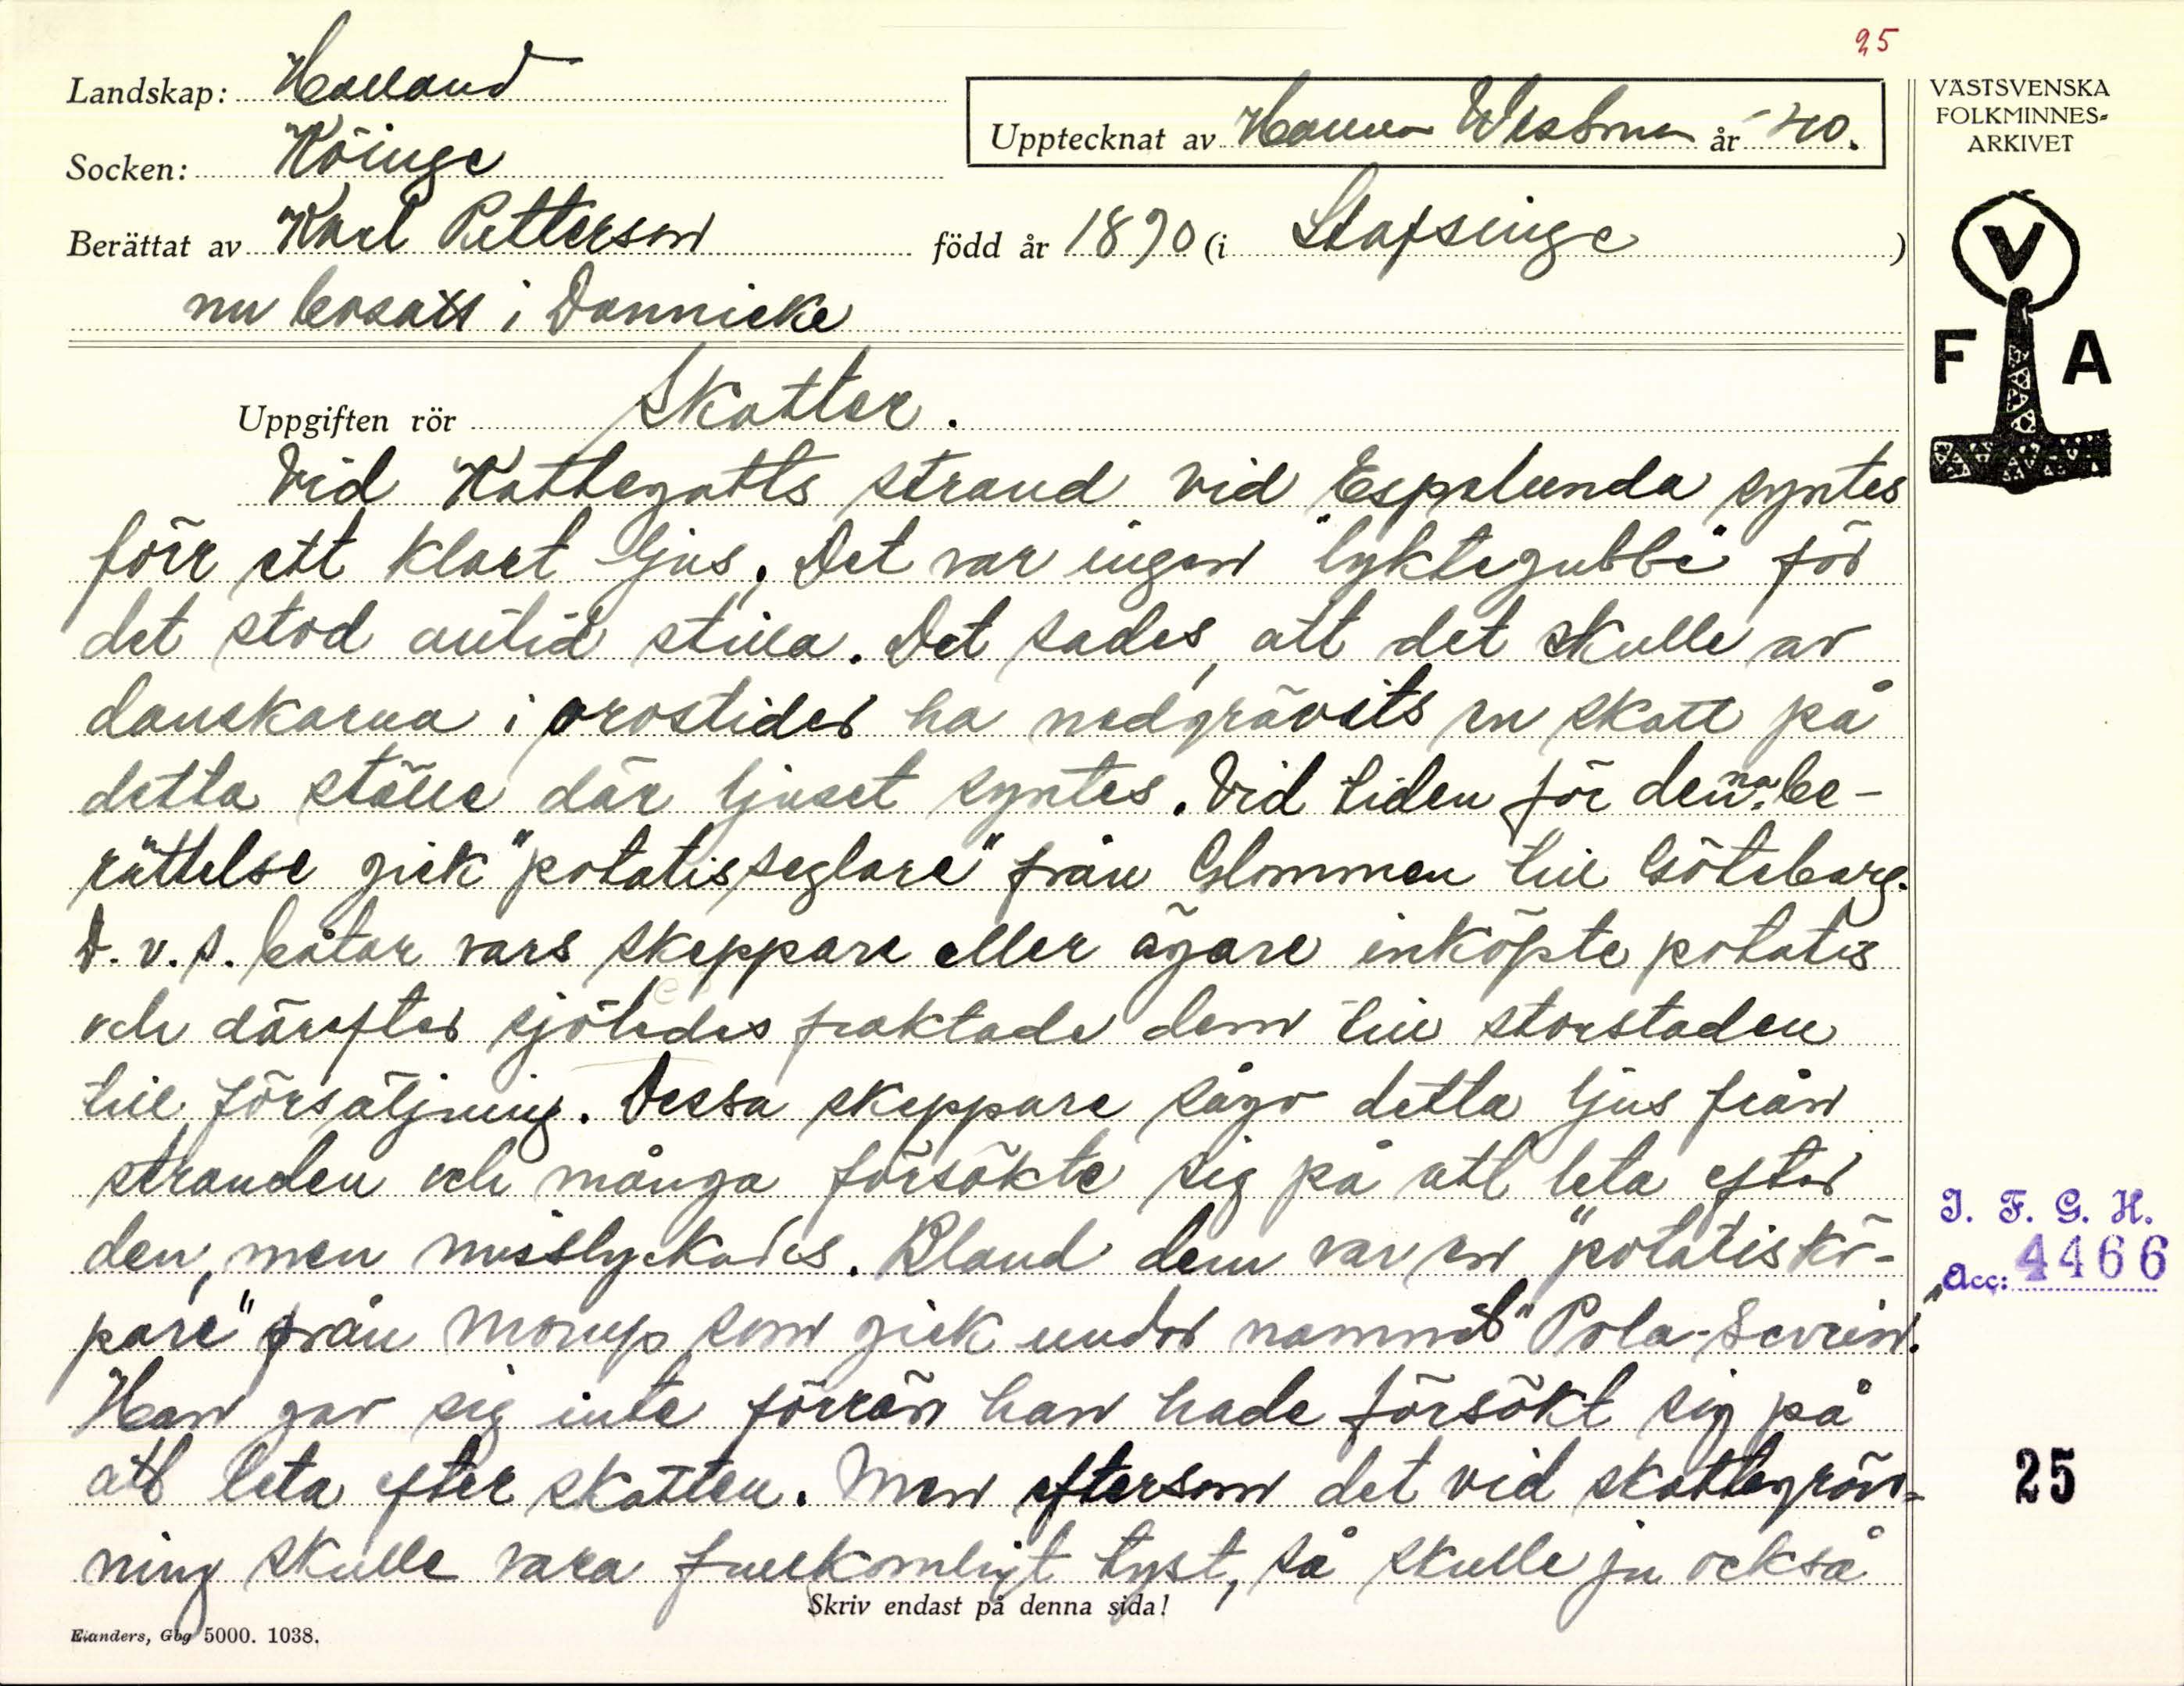 25
Landskap: Halland
Upptecknat av Hanna Westman år -40.
Socken: Köinge
Berättat av Karl Petterson född år 1890 (i Stafsinge)
nu bosatt i Dannicke
VÄSTSVENSKA
FOLKMINNES-
ARKIVET
V
F A
Uppgiften rör Skatter.
Vid Kattegatts strand vid Espalunda syntes
förr ett klart ljus. Det var ingen "lyktegubbe" för
det stod alltid stilla. Det sades, att det skulle av
danskarna i orostider ha nedgrävits en skatt på
detta ställe där ljuset syntes. Vid tiden för denna be-
rättelse gick "potatisseglare" från Glommen till Göteborg.
D.v.s. båtar vars skeppare eller ägare inköpte potatis
och därefter sjöledes fraktade dem till storstaden
till försäljning. Dessa skeppare sågo detta ljus från
stranden och många försökte sig på att leta efter
den, men misslyckades. Bland dem var en "potatiskö-
pare" från Morup som gick under namnet "Pola-Severin."
Han gav sig inte förrän han hade försökt sig på
att leta efter skatten. Men eftersom det vid skattegräv-
ning skulle vara fullkomligt tyst, så skulle ju också
Skriv endast på denna sida!
Elanders, Gbg 5000. 1038.
I. F. G. H.
Acc: 4466
25